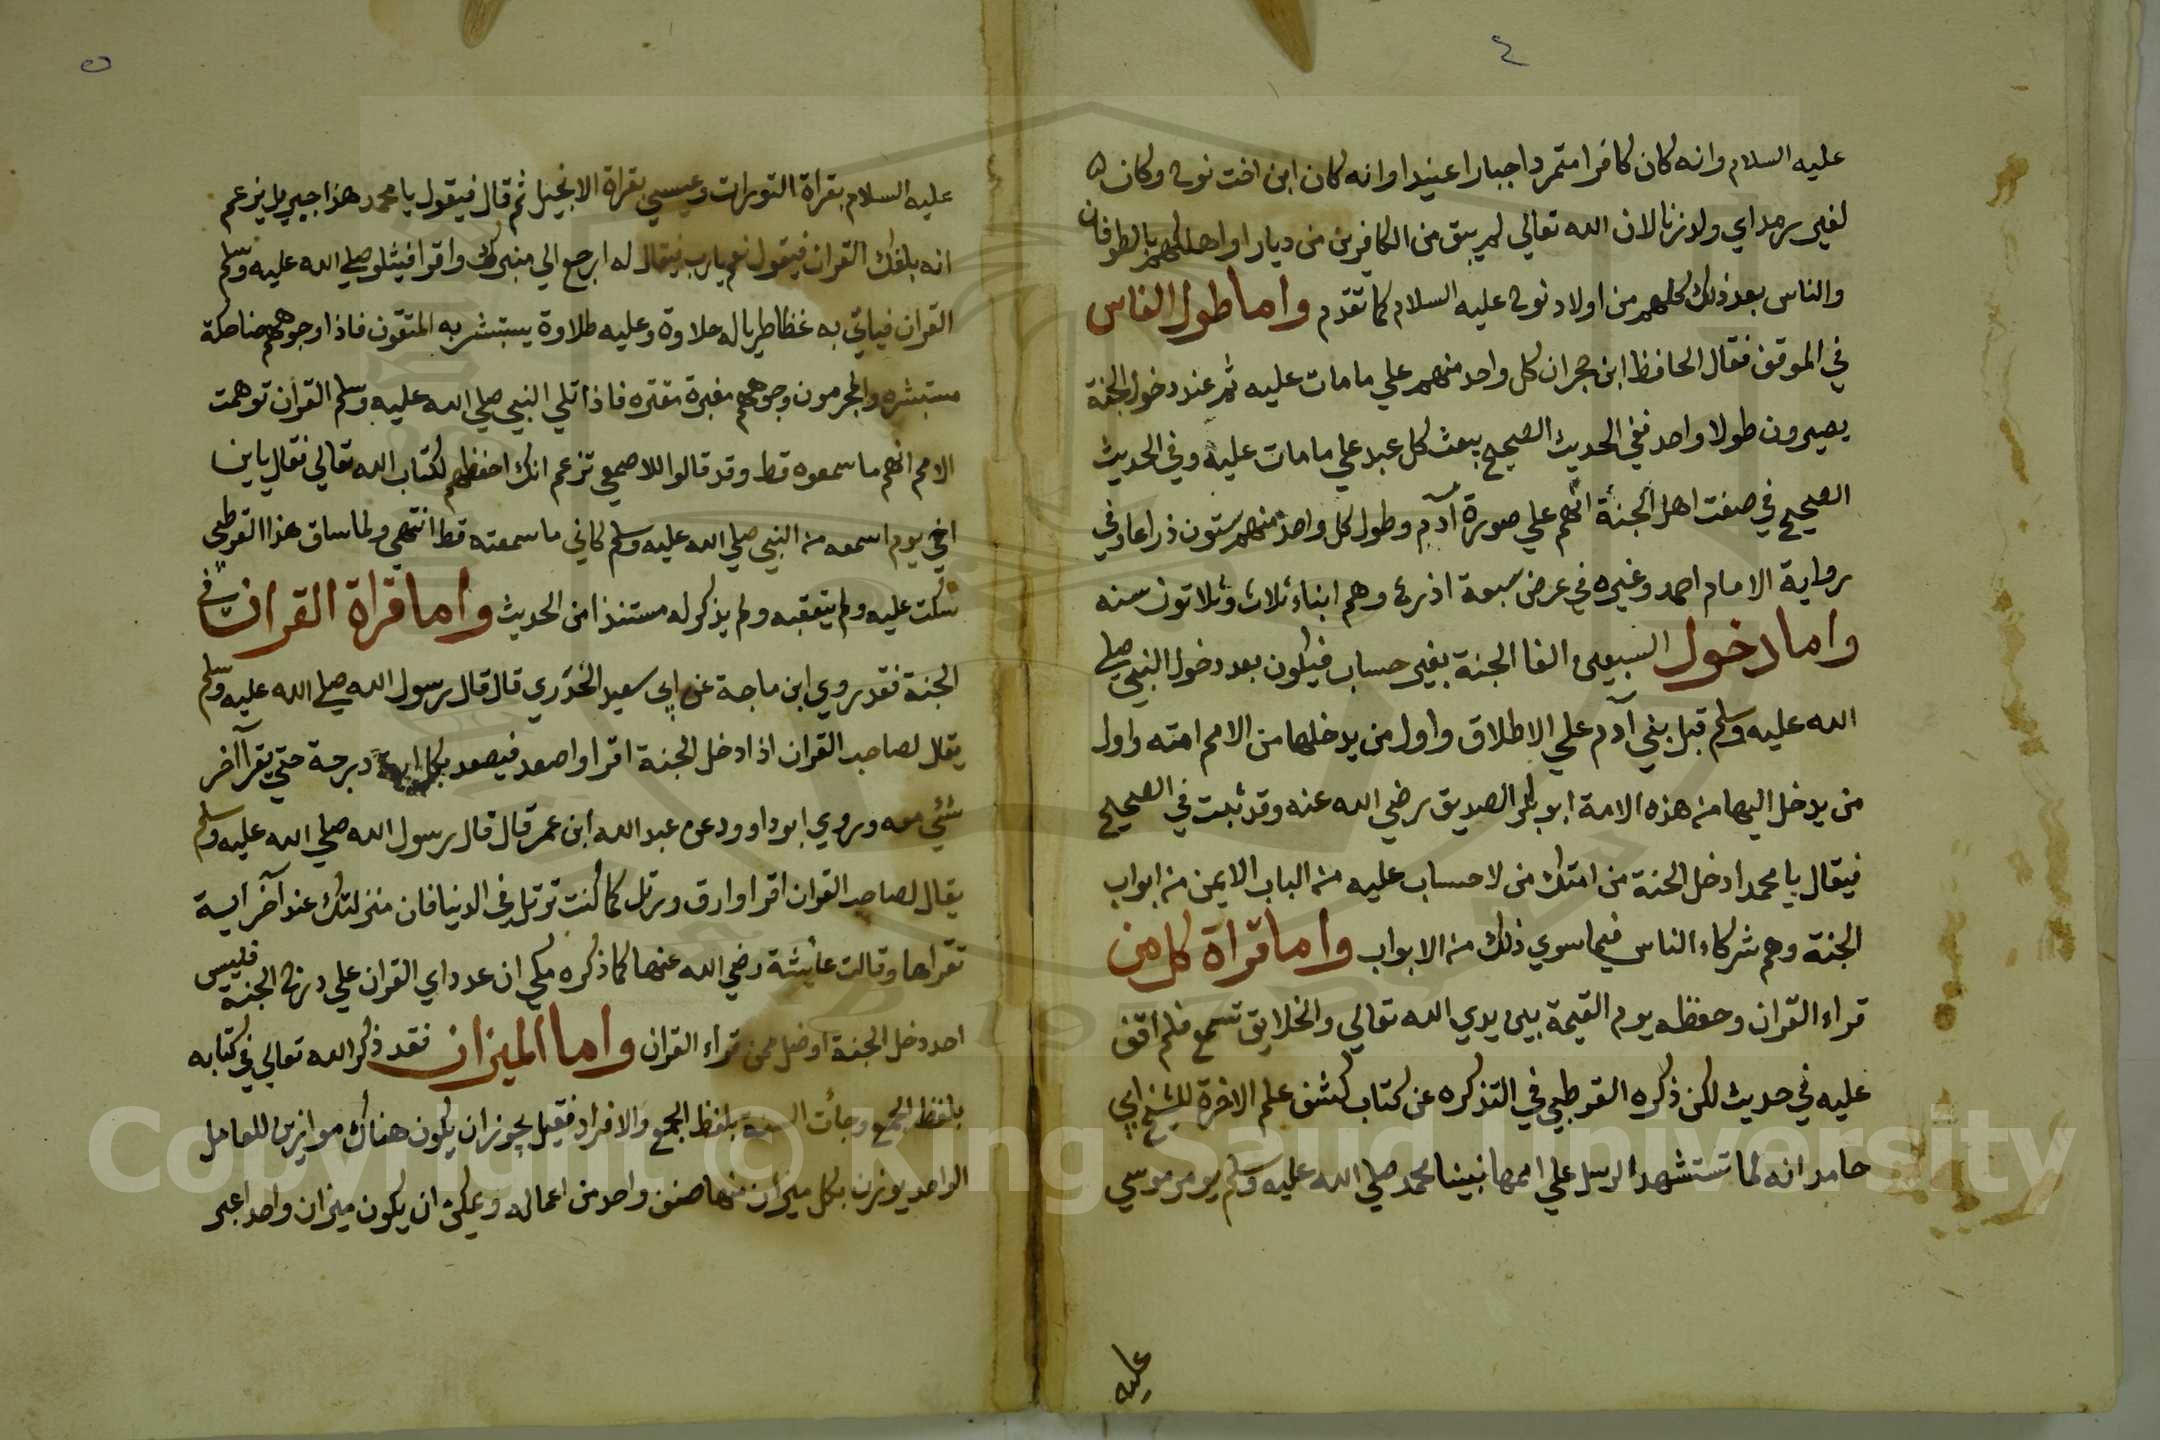 ٤
عليه السلام وانه كان كافرا متمردا جبارا عنيدا وانه كان ابن اخت نوح وكان
لغير رمداي ولد زنا لان الله تعالي لم يبق من الكافرين من ديار او اهلكهم بالطوفان
والناس بعد ذلك كلهم من اولاد نوح عليه السلام كما تقدم واما طول الناس
في الموقف فقال الحافظ ابن حجر ان كل واحد منهم علي ما مات عليه ثم عند دخول الجنة
يصيرون طولا واحد ففي الحديث الصحيح يبعث كل عبد علي ما مات عليه وفي الحديث
الصحيح في صفت اهل الجنة انهم علي صورة آدم وطول كل واحد منهم ستون ذراعا وفي
رواية الامام احمد وغيره في عرض سبعة اذرع وهم ابناء ثلاث وثلاثون سنه
واما دخول السبعين الفا الجنة بغير حساب فيكون بعد دخول النبي صلي
الله عليه وسلم قبل بني آدم علي الاطلاق واول من يدخلها من الامم امته واول
من يدخل اليها من هذه الامة ابو بكر الصديق رضي الله عنه وقد ثبت في الصحيح
فيقال يا محمد ادخل الجنة من امتك من لا حساب عليه من الباب الايمن من ابواب
الجنة وهم شركاء الناس فيما سوي ذلك من الابواب واما قراة كل من
قراء القران وحفظه يوم القيمة بين يدي الله تعالي والخلايق تسمع فلم اقف
عليه في حديث لكن ذكره القرطبي في التذكره عن كتاب كشف علم الاخرة للشيخ ابي
حامد انه لما تستشهد الرسل علي اممها نبينا محمد صلي الله عليه وسلم يومر موسي
عليه
٥
عليه السلام بقراة التورات وعيسي بقراة الانجيل ثم قال فيقول يا محمد هذا جبريل يزعم
انه بلغك القران فيقول نعم يارب فيقال له ارجع الي منبرك واقرا فيتلو صلي الله عليه وسلم
القران فياتي به غظا طريا له حلاوة وعليه طلاوة يستبشر به المتقون فاذا وجوههم ضاحكة
مستبشره والمجرمون وجوههم مغبرة مقتره فاذا تلي النبي صلي الله عليه وسلم القران توهمت
الامم انهم ما سمعوه قط وقد قالوا للاصمعي تزعم انك احفظهم لكتاب الله تعالي فقال يا بن
اخي يوم اسمعه من النبي صلي الله عليه وسلم كاني ما سمعته قط انتهي ولما ساق هذا القرطبي
سكت عليه ولم يتعقبه ولم يذكر له مستندا من الحديث واما قراة القران في
الجنة فقد روي ابن ماجة عن ابي سعيد الخدري قال قال رسول الله صلي الله عليه وسلم
يقال لصاحب القران اذا دخل الجنة اقرا واصعد فيصعد بكل اية درجة حتي يقرا آخر
شئي معه وروي ابو داوود عن عبد الله ابن عمر قال قال رسول الله صلي الله عليه وسلم
يقال لصاحب القران اقرا وارق ورتل كما كنت ترتل في الدنيا فان منزلتك عند آخر اية
تقراها وقالت عايشة رضي الله عنها كما ذكره مكي ان عدد اي القران علي درج الجنة فليس
احد دخل الجنة افضل ممن قراء القران واما الميزان فقد ذكر الله تعالي في كتابه
بلفظ الجمع وجأت السنة بلفظ الجمع والافراد فقيل يجوز ان يكون هناك موازين للعامل
الواحد يوزن بكل ميزان منها صنف واحد من اعماله ويمكن ان يكون ميزان واحد اعبر
Copyright © King Saud University